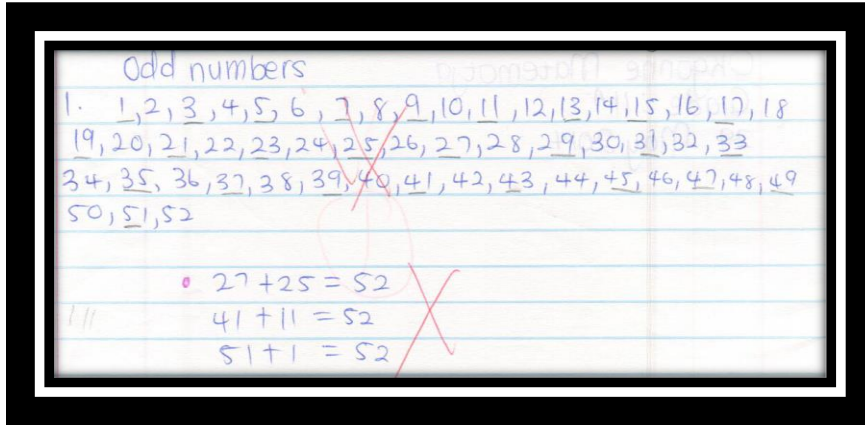 Odd numbers
1. 1,2,3,4,5,6,7,8,9,10,11,12,13,14,15,16,17,18
19,20,21,22,23,24,25,26,27,28,29,30,31,32,33
34,35,36,37,38,39,40,41,42,43,44,45,46,47,48,49
50,51,52
27+25=52
41+11=52
51+1=52